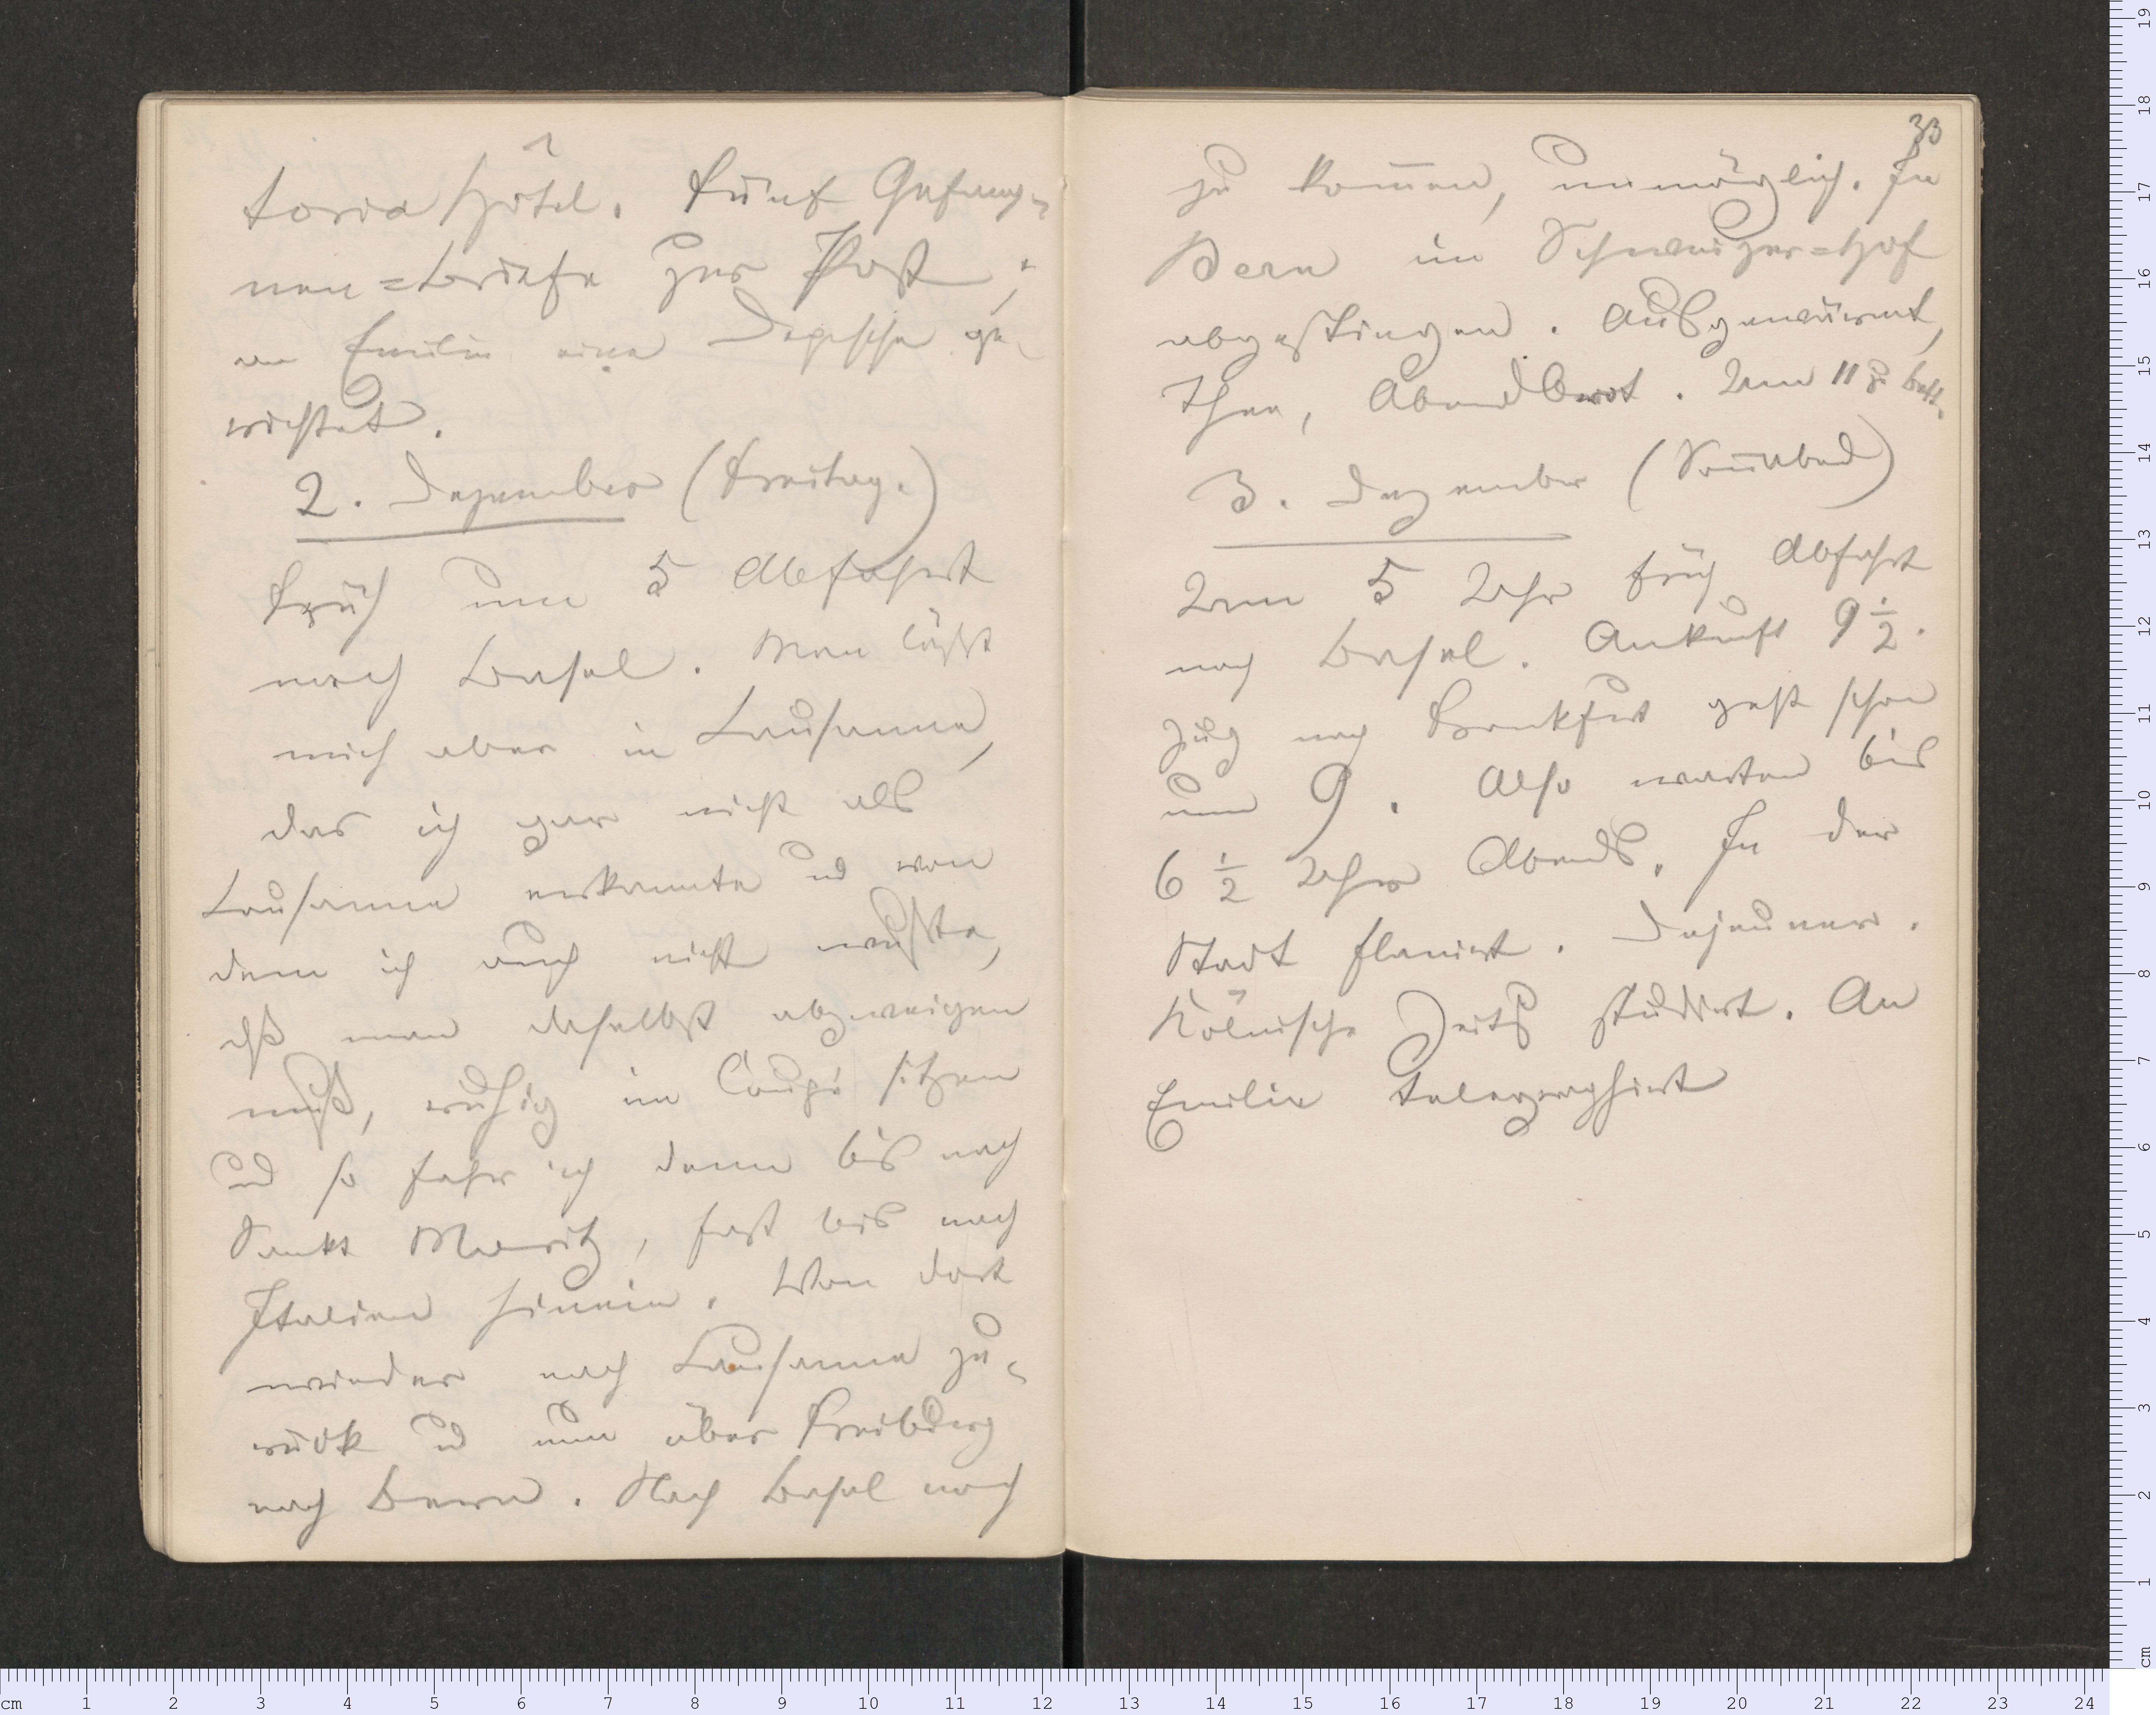 toria Hôtel. Fünf Gefange-
nen=Briefe zur Post;
an Emilie eine Depesche ge-
richtet.
2. Dezember (Freitag.)
Früh um 5 Abfahrt
nach Basel. Man läßt
mich aber in Lausanne,
das ich gar nicht als
Lausanne erkannte und von
dem ich auch nicht wußte,
daß man daselbst abzweigen
muß, ruhig im Coupé sitzen
und so fahr ich denn bis nach
Sankt Moritz, fast bis nach
Italien hinein. Von dort
wieder nach Lausanne zu-
rück und nun über Freiburg
nach Bern. Nach Basel noch
33
zu kom̅en, unmöglich. In
Bern im Schweizer=Hof
abgestiegen. Aufgewärmt,
Thee, Abendbrot. Um 11 z. Bett.
3. Dezember (Son̅abend)
Um 5 Uhr früh Abfahrt
nach Basel. Ankunft 9 1/2.
Zug nach Frankfurt geht schon
um 9. Also warten bis
6 1/2 Uhr Abends. In der
Stadt flanirt. Dejeuner.
Kölnische Zeitg studirt. An
Emilie telegraphirt